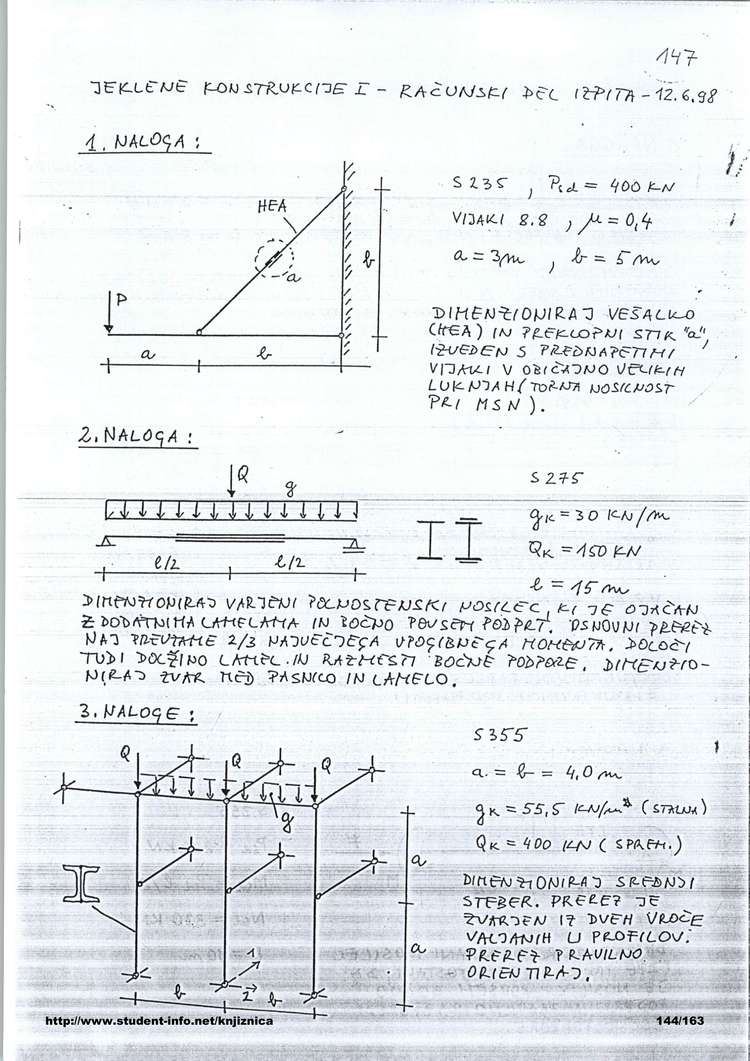 147
JEKLENE KONSTRUKCIJE I - RAČUNSKI DEL IZPITA - 12.6.98
1. NALOGA:
HEA
a
b
P
a
b
S235, Psd = 400 KN
VIJAKI 8.8, μ = 0,4
a = 3m, b = 5m
DIMENZIONIRAJ VEŠALKO
(HEA) IN PREKLOPNI STIK "a",
IZVEDEN S PREDNAPETIMI
VIJAKI V OBIČAJNO VELIKIH
LUKNJAH (TORNA NOSILNOST
PRI MSN).
2. NALOGA:
Q
g
l/2
l/2
S275
gK = 30 KN/m
QK = 150 KN
l = 15 m
DIMENZIONIRAJ VARJENI POLNOSTENSKI NOSILEC, KI JE OJAČAN
Z DODATNIMA LAMELAMA IN BOČNO POVSEM PODPRT. OSNOVNI PREREZ
NAJ PREVZAME 2/3 NAJVEČJEGA UPOGIBNEGA MOMENTA. DOLOČI
TUDI DOLŽINO LAMEL IN RAZMESTI BOČNE PODPORE. DIMENZIO-
NIRAJ ZVAR MED PASNICO IN LAMELO.
3. NALOGE:
Q
Q
Q
g
a
a
1
2
b
b
S355
a = b = 4,0 m
gK = 55,5 KN/m (STALNA)
QK = 400 KN (SPREM.)
DIMENZIONIRAJ SREDNJI
STEBER. PREREZ JE
ZVARJEN IZ DVEH VROČE
VALJANIH U PROFILOV.
PREREZ PRAVILNO
ORIENTIRAJ.
http://www.student-info.net/knjiznica
144/163